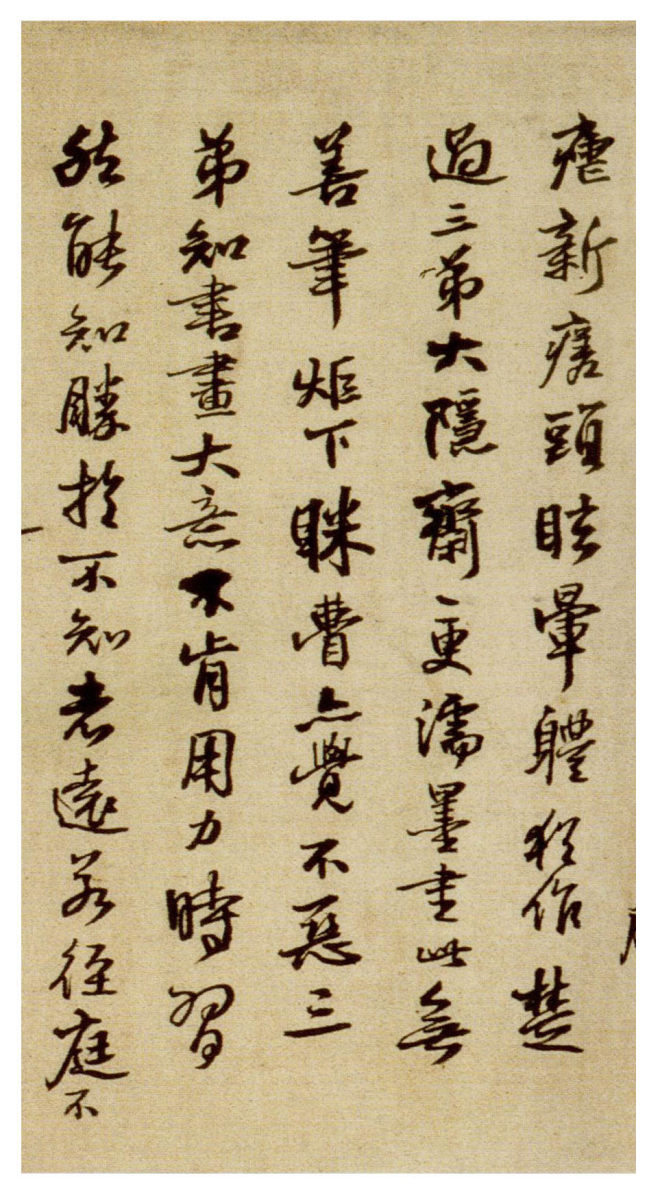 瘧新瘥頭眩暈體猶作楚
過三弟大隱齋更濡墨書此無
善筆炬下眯亦覺不惡三
弟知書畫大意不肯用力時習
然能知勝於不知者遠若徑庭不